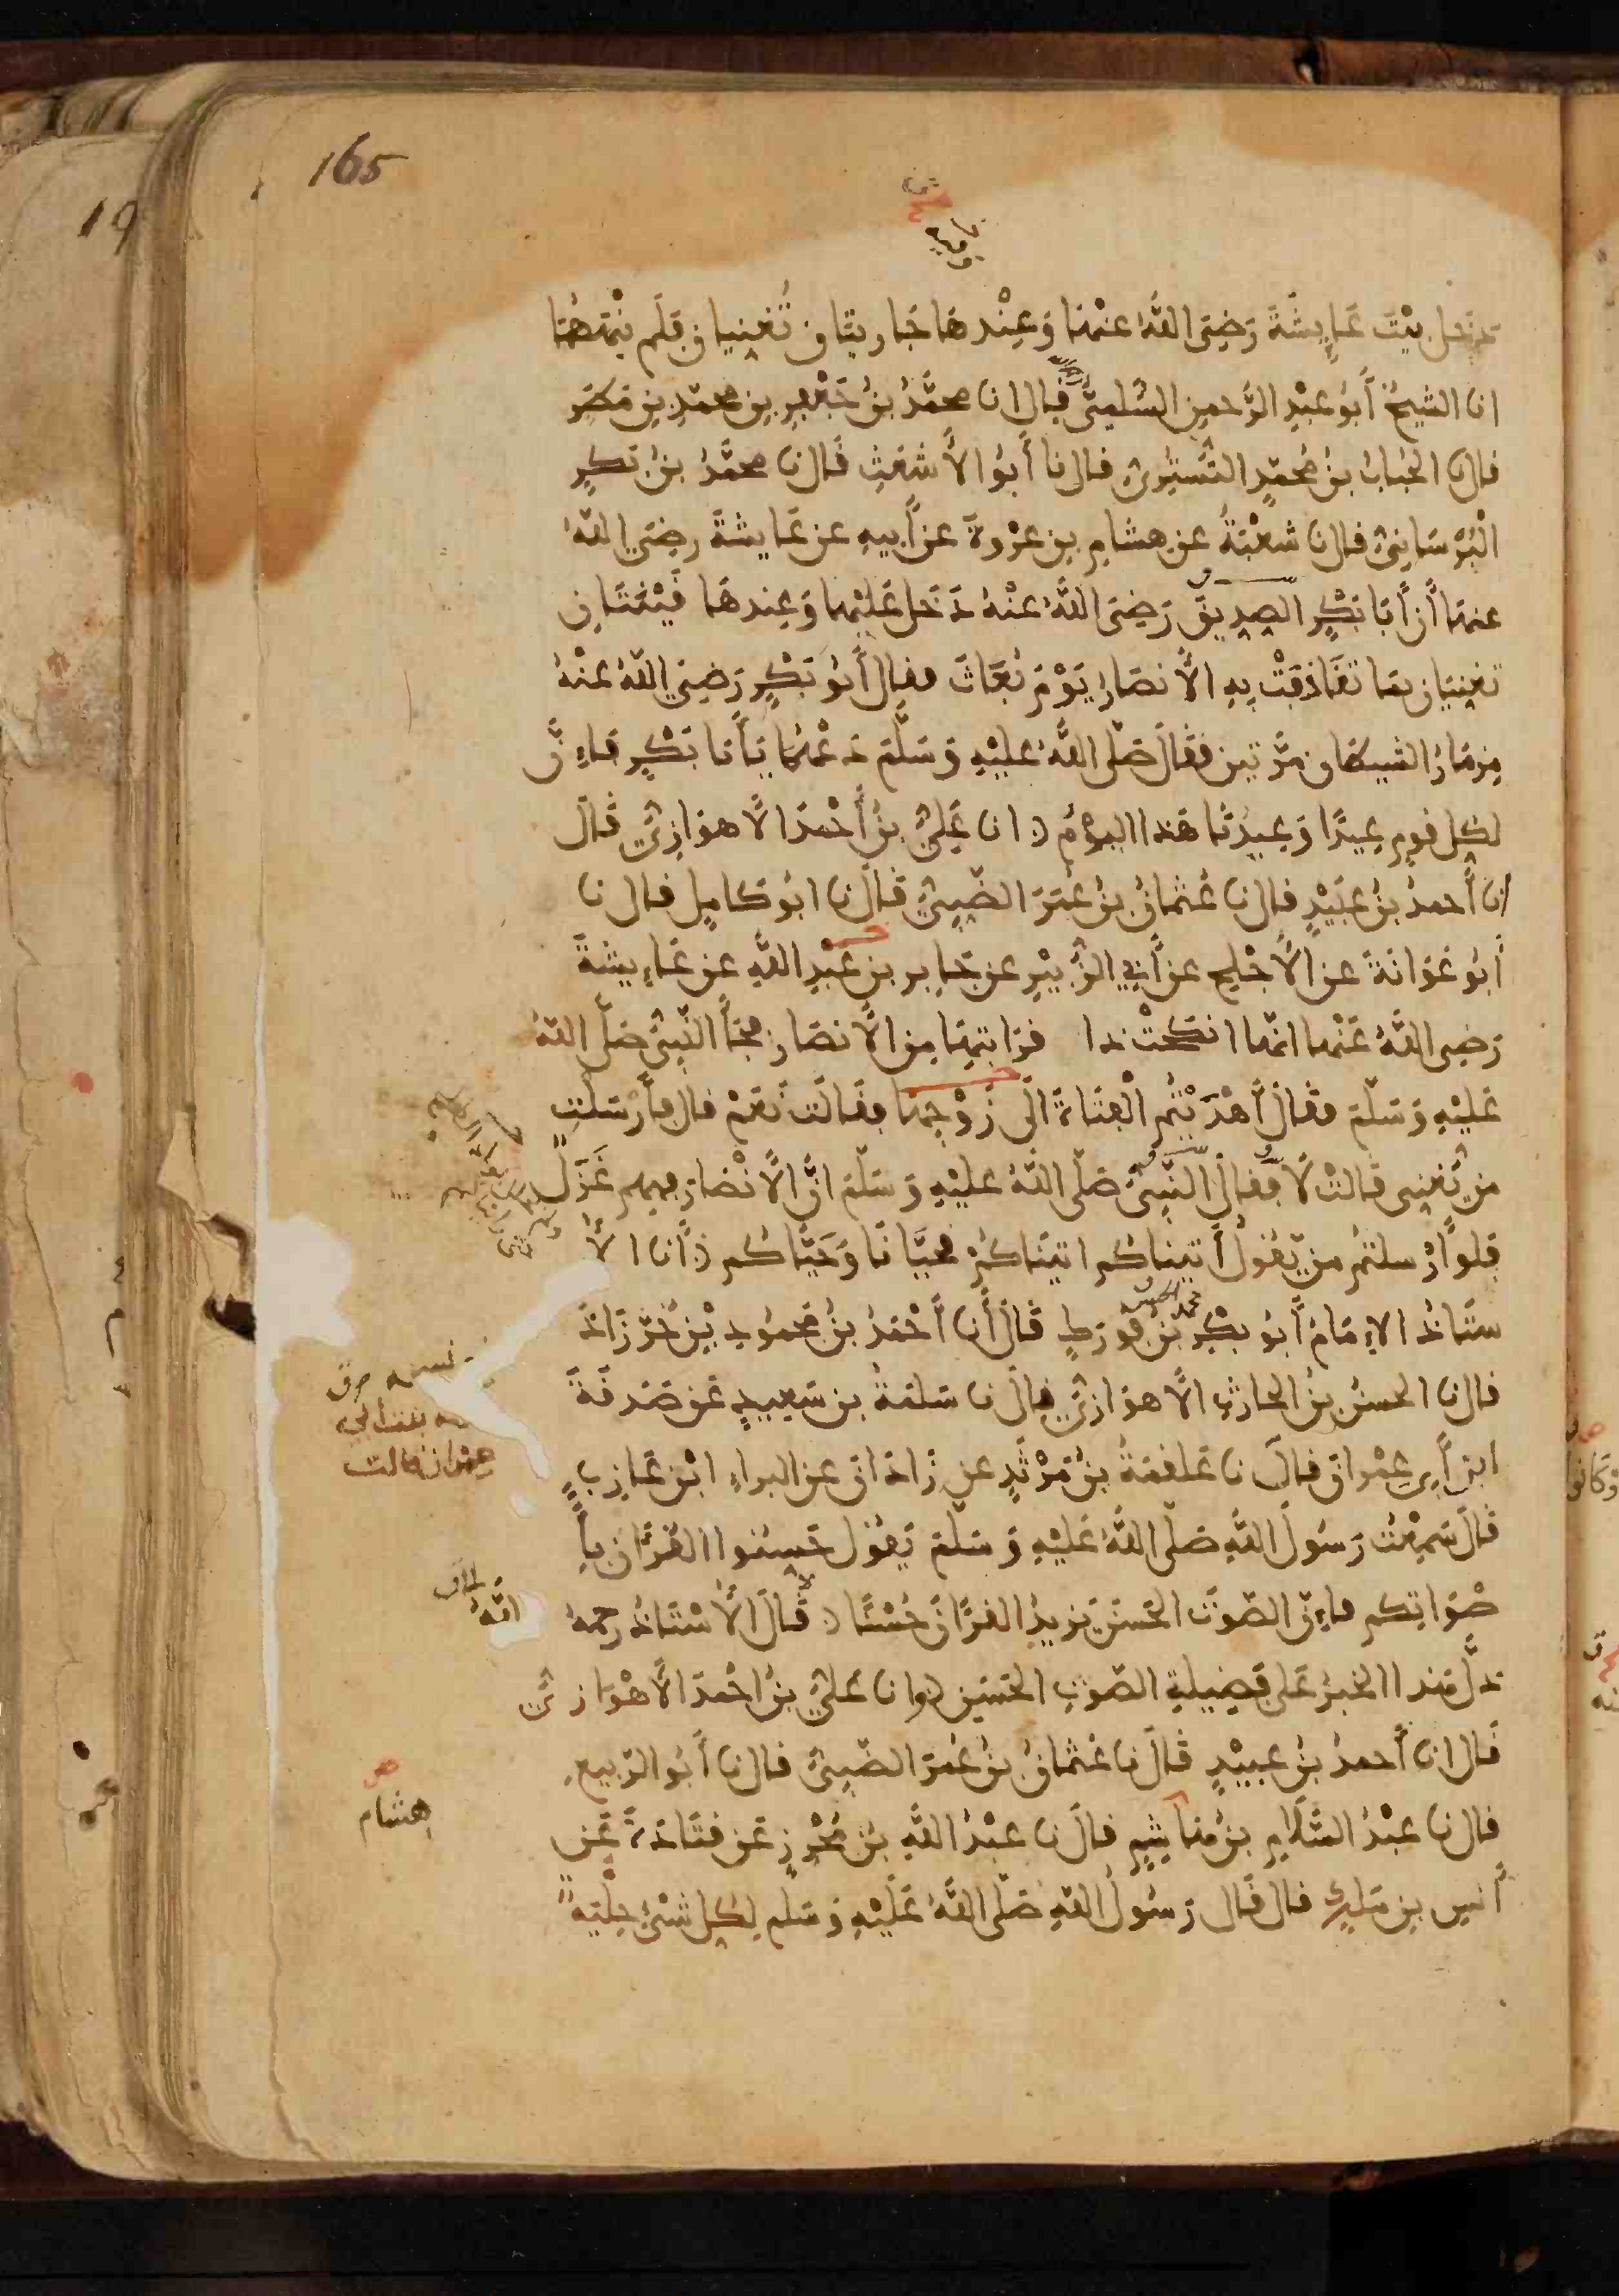 165
دخل بيْتَ عَايِشَةَ رَضِىَ اللَّهُ عنْهَا وَعِنْدهَا جَاريتَان تُغنيان فلَم ينْهَهُمَا
انا الشيخُ أَبُو عبْدِ الرَّحمنِ السُّلمِىُّ قال انا محمَّدُ بنُ جَعْفرِ بنِ محمّدِ بنِ مَطَرٍ
قال نا الحُبَابُ بنُ مُحمّدٍ التُّسْتَرِىُّ قال نا أَبُو الأَشعَثِ قَال نا محمَّدُ بنُ بَكرٍ
الْبُرْسَانِىُّ قال نا شعْبَةُ عن هشَامِ بنِ عُرْوةَ عنْ أَبيهِ عن عَايشةَ رضِىَ اللَّهُ
عنهَا أَنَّ أَبَا بَكْرٍ الصِديقَ رَضِىَ اللَّهُ عنْهُ دَخَل عَليْهَا وَعِندهَا قَيْنَتَانِ
تغنيَان بمَا تقَاذفَتْ بهِ الأَنصَارُ يَوْمَ بُعَاثَ فقال أَبُو بَكْرٍ رَضِىَ اللَّهُ عنْهُ
مِزمَارُ الشيطَان مرَّتين فقَالَ صَلَّى اللَّهُ عليْهِ وَسَلَّمَ دَعْهُمَا يَأَبَا بَكْرٍ فإِنَّ
لكلِ قومٍ عِيدًا وَعِيدُنَا هَذا اليوْمُ انا عَلِىُّ بنُ أَحْمدَ الأَهوَازِىُّ قَالَ
انا أَحمدُ بنُ عبَيْدٍ قال نا عُثمَانُ بنُ عُمَرَ الضَّبِىُّ قَالَ نا ابُو كَامِلٍ قال نا
أَبُو عَوَانَةَ عن الأَجْلحِ عن أَبِى الزُّبَيْرِ عن جَابِر بن عَبْدِ اللَّهِ عن عَايِشةَ
رَضِى اللَّهُ عَنْهَا انَّها انكَحتْ ذا قرَابتِهَا مِن الأَنصَار فجَأَ النَّبِىُّ صَلَّى اللَّهُ
عَليْهِ وَسَلَّمَ فقَالَ أَهْدَيْتُم الْفتَاةَ الَى زَوْجِهَا فقَالَت نَعَمْ قال فأَرْسَلْتِ
من تُغنِى قَالتْ لَا فقالَ النَّبِىُّ صَلَّى اللَّهُ عليْهِ وَسَلّمَ انَّ الأَنْصَارَ فيهم غَزَلٌ
فلوْ أَرْسلتُم من يَقُولُ أَتيناكُم اتيْنَاكُمْ فحَيَّانَا وَحَيَّاكُم أَنا الأُ
ستَاذُ الإِمَامُ أَبُو بَكْرٍ محمد بن الحسن بن فورَكٍ قَالَ أَنا أَحْمَدُ بنُ مَحمُودِ بْن خُرَّزَاذَ
قال نا الحسنُ بنُ الحارثِ الأَهوَازِىُّ قالَ نا سَلمَةُ بن سَعِيدٍ عَن صَدقَةَ
ابنِ أَبِى عِمْرانَ قالَ نا عَلقمَةُ بنُ مَرْثَدٍ عن زَاذَانَ عن البراءِ ابْنِ عَازِبٍ
قَالَ سَمِعْتُ رَسُولَ اللَّهِ صَلَّى اللَّهُ عَليْهِ وَسَلّمَ يَقُول حَسِّنُوا القُرْآنَ بأَ
صْوَاتكم فإِنَّ الصَّوْتَ الحَسَنَ يَزيدُ القرْآنَ حُسْنًا قَالَ الأُسْتَاذُ رحمهُ
اللَّهُ
دَلَّ هَذا الخبرُ عَلى فَضِيلةِ الصَّوْتِ الحَسَنِ وانا علىُّ بنُ احْمدَ الأَهْوَازِىُّ
قَال انا أَحمدُ بنُ عبيْدٍ قَالَ نا عُثمَانُ بنُ عُمَرَ الضَّبِىُّ قال نا أَبُو الرَّبيعِ
قال نا عبْدُ السَّلَامِ بنُ هَاشِمٍ قالَ نا عبْدُ اللَّهِ بنُ مُحْرِزٍ عَن قتَادَةَ عَن
هشام
أَنسِ بنِ مَلِكٍ قال قَالَ رَسُولُ اللَّهِ صَلَّى اللَّهُ عَليْهِ وَسَلم لِكلِ شَىْءٍ حِلْيَةٌ